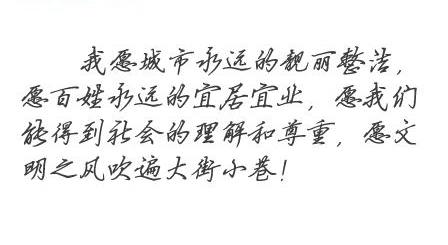 我愿城市永远的靓丽整洁，
愿百姓永远的宜居宜业，愿我们
能得到社会的理解和尊重，愿文
明之风吹遍大街小巷！